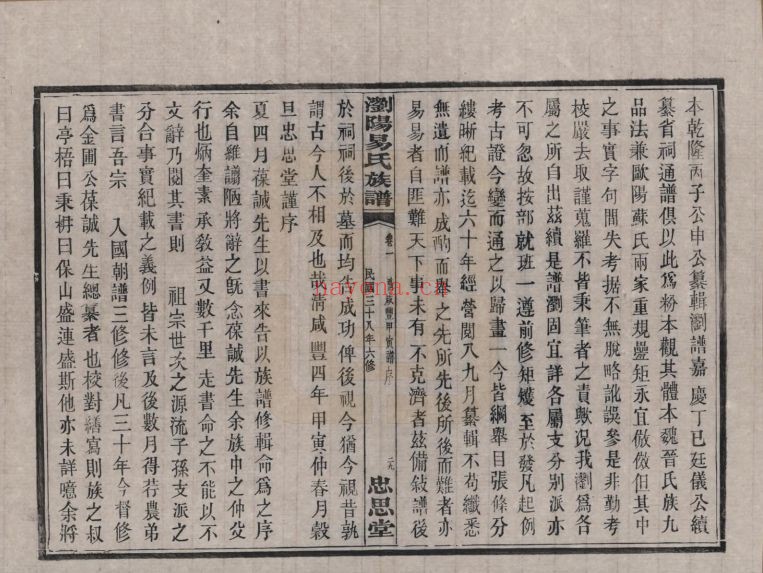 本乾隆丙子公申公纂輯瀏譜嘉慶丁巳廷儀公續
纂省祠通譜俱以此爲粉本觀其體本魏晉氏族九
品法兼歐陽蘇氏兩家重規疊矩永宜倣傚但其中
之事實字句間失考据不無脫略訛誤參是非勤考
校嚴去取謹蒐羅不皆秉筆者之責歟况我瀏爲各
屬之所自出茲續是譜瀏固宜詳各屬支分別派亦
不可忽故按部就班一遵前修矩矱至於發凡起例
考古證今變而通之以歸畫一今皆綱舉目張條分
縷晰紀載迄六十年經營閱八九月纂輯不苟纖悉
無遺而譜亦成酌而舉之先所先後所後而難者亦
易易者自匪難天下事未有不克濟者茲備敍譜後
於祠祠後於墓而均生成功俾後視今猶今視昔孰
謂古今人不相及也哉淸咸豐四年甲寅仲春月穀
旦忠思堂謹序
瀏陽易氏族譜
卷一
咸豐甲寅譜序
民國三十八年六修
忠思堂
夏四月葆誠先生以書來告以族譜修輯命爲之序
余自維譾陋將辭之旣念葆誠先生余族中之仲父
行也炳奎素承敎益又數千里走書命之不能以不
文辭乃閱其書則 祖宗世次之源流子孫支派之
分合事實紀載之義例皆未言及後數月得荇農弟
書言吾宗 入國朝譜三修修後凡三十年今督修
爲金圃公葆誠先生總纂者也校對繕寫則族之叔
曰亭梧曰秉耕曰保山盛連盛斯他亦未詳噫余將